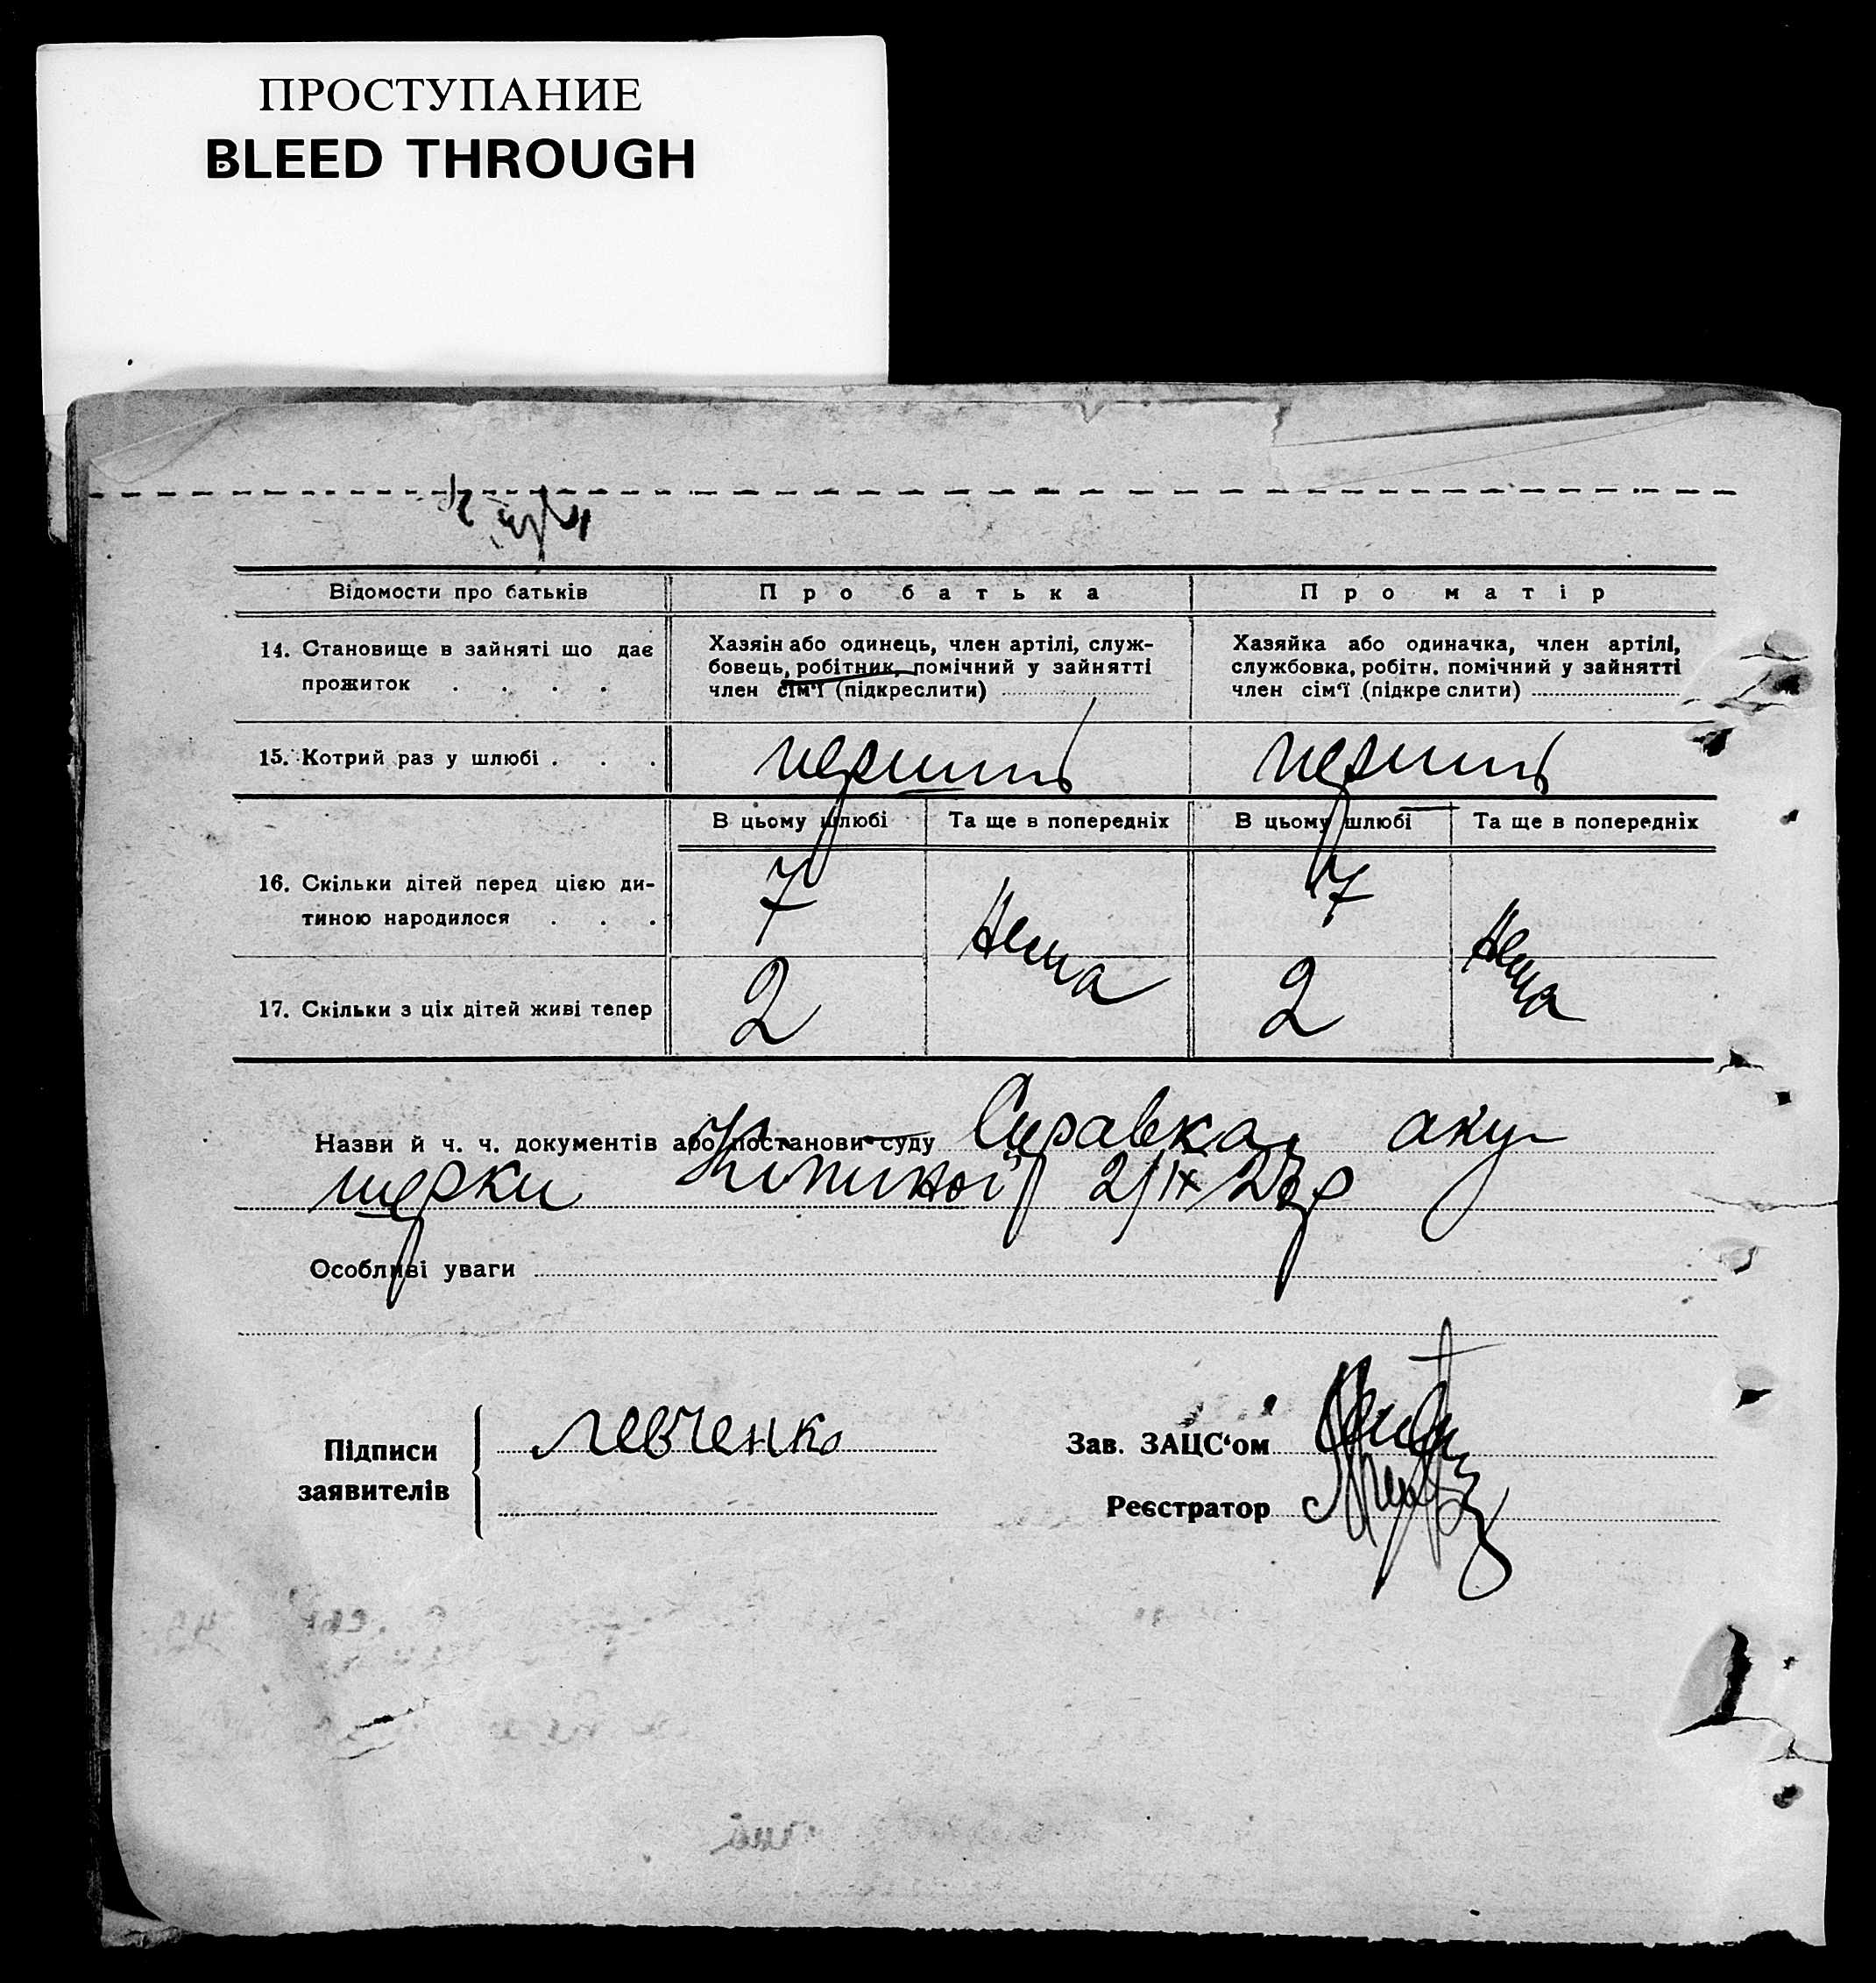 ПРОСТУПАНИЕ
BLEED THROUGH
Відомости про батьків
Про батька
Про матір
14. Становище в зайняті що дає
прожиток . . . .
Хазяін або одинець, член артілі, служ-
бовець, робітник, помічний у зайнятті
член сім'ї (підкреслити)
Хазяйка або одиначка, член артілі,
службовка, робітн. помічний у зайнятті
член сім'ї (підкреслити)
15. Котрий раз у шлюбі . . .
перший
перший
В цьому шлюбі
Та ще в попередніх
В цьому шлюбі
Та ще в попередніх
16. Скільки дітей перед цією ди-
тиною народилося . . .
7
Нема
7
Нема
17. Скільки з ціх дітей живі тепер
2
2
Назви й ч. ч. документів або постанови суду Справка аку
шерки 2/IX
Особливі уваги
Підписи
заявителів
левченко
Зав. ЗАЦС'ом
Реєстратор